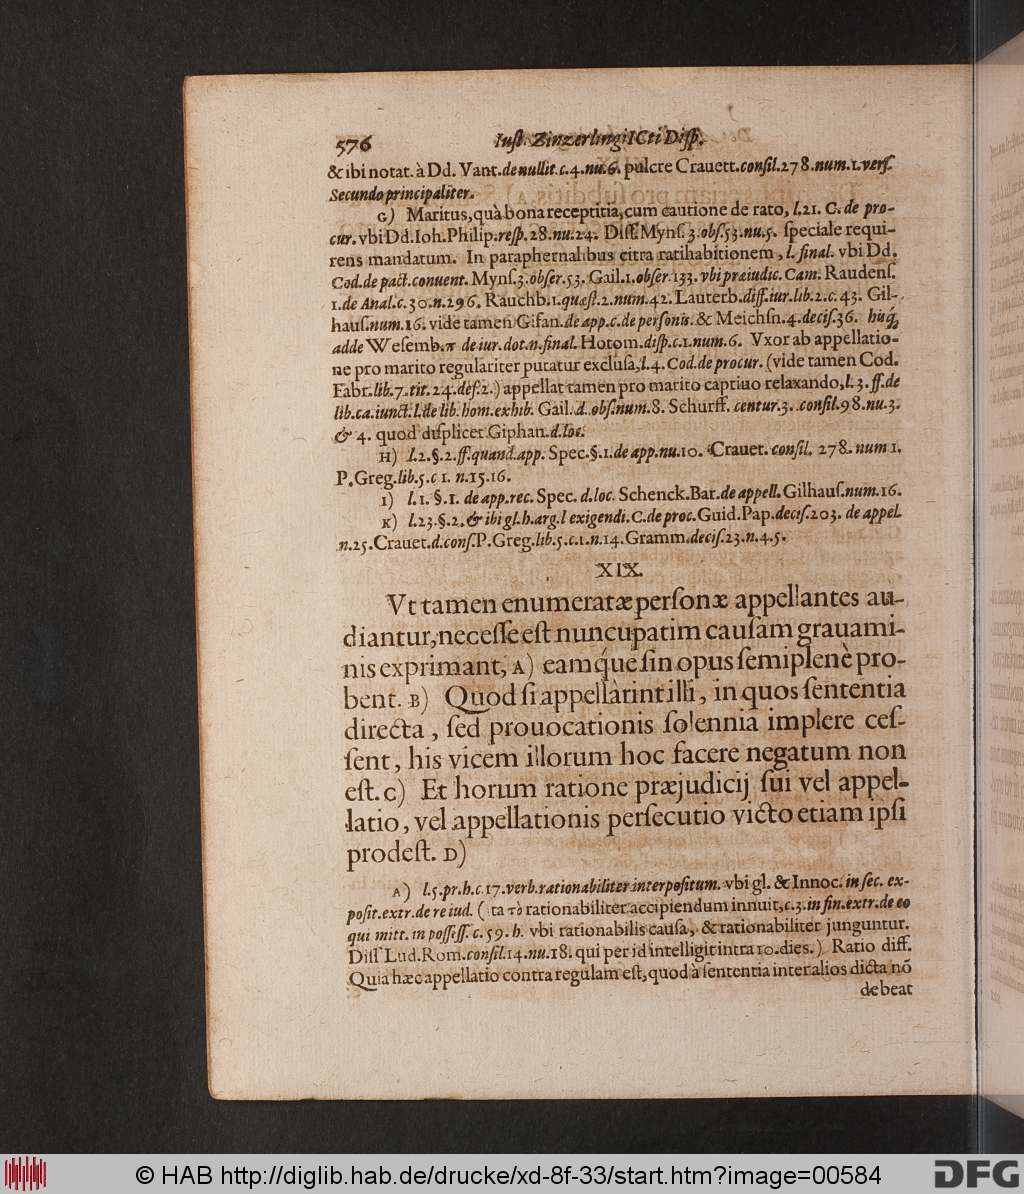 576 Iuſt. Zinzerlingi ICti Diſp.
& ibi notat. à Dd. Vant. de nullit. c. 4. nu. 6. pulcre Crauett. conſil. 278. num. 1. verſ.
Secundo principaliter.
G) Maritus, quà bona receptitia, cum cautione de rato, l. 21. C. de pro-
cur. vbi Dd. Ioh. Philip. reſp. 28. nu. 24. Diſſ. Mynſ. 3. obſ. 53. nu. 5. ſpeciale requi-
rens mandatum. In paraphernalibus citra ratihabitionem, l. final. vbi Dd.
Cod. de pact. conuent. Mynſ. 3. obſer. 53. Gail. 1. obſer. 133. vbi præiudic. Cam. Raudenſ.
1. de Anal. c. 30. n. 296. Rauchb. 1. quæſt. 2. num. 42. Lauterb. diff. iur. lib. 2. c. 43. Gil-
hauſ. num. 16. vide tamen Gifan. de app. c. de perſonis. & Meichſn. 4. deciſ. 36. huq́;
adde Weſemb. π de iur. dot. n. final. Hotom. diſp. c. 1. num. 6. Vxor ab appellatio-
ne pro marito regulariter putatur excluſa, l. 4. Cod. de procur. (vide tamen Cod.
Fabr. lib. 7. tit. 24. def. 2.) appellat tamen pro marito captiuo relaxando, l. 3. ff. de
lib. ca. iunct. l. de lib. hom. exhib. Gail. d. obſ. num. 8. Schurff. centur. 3. conſil. 98. nu. 3.
& 4. quod diſplicet Giphan. d. loc.
H) l. 2. §. 2. ff. quand. app. Spec. §. 1. de app. nu. 10. Crauet. conſil. 278. num 1.
P. Greg. lib. 5. c 1. n. 15. 16.
I) l. 1. §. 1. de app. rec. Spec. d. loc. Schenck. Bar. de appell. Gilhauſ. num. 16.
K) l. 23. §. 2. & ibi gl. h. arg. l exigendi. C. de proc. Guid. Pap. deciſ. 203. de appel.
n. 25. Crauet. d. conſ. P. Greg. lib. 5. c. 1. n. 14. Gramm. deciſ. 23. n. 4. 5.
XIX.
Vt tamen enumeratæ perſonæ appellantes au-
diantur, neceſſe eſt nuncupatim cauſam grauami-
nis exprimant, A) eamq́ue ſin opus ſemiplenè pro-
bent. B) Quod ſi appellàrint illi, in quos ſententia
directa, ſed prouocationis ſolennia implere ceſ-
ſent, his vicem illorum hoc facere negatum non
eſt. C) Et horum ratione præjudicij ſui vel appel-
latio, vel appellationis perſecutio victo etiam ipſi
prodeſt. D)
A) l. 5. pr. h. c. 17. verb. rationabiliter interpoſitum. vbi gl. & Innoc. in ſec. ex-
poſit. extr. de re iud. (ita τὸ rationabiliter accipiendum innuit, c. 3. in fin. extr. de eo
qui mitt. in poſſeſſ. c. 59. h. vbi rationabilis cauſa, & rationabiliter junguntur.
Diſſ Lud. Rom. conſil. 14. nu. 18. qui per id intelligit intra 10. dies.) Ratio diff.
Quia hæc appellatio contra regulam eſt, quod à ſententia inter alios dicta nõ
debeat
© HAB http://diglib.hab.de/drucke/xd-8f-33/start.htm?image=00584
DFG